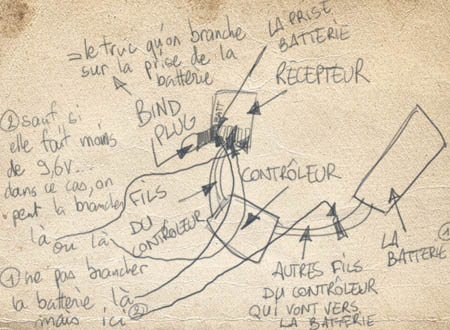 = le truc qu'on branche
sur la prise de la
batterie
LA PRISE
BATTERIE
RÉCEPTEUR
BIND
PLUG
BATT
② sauf si
elle fait moins
de 9,6V...
dans ce cas, on
peut la brancher
là ou là
FILS
DU
CONTRÔLEUR
CONTRÔLEUR
① ne pas brancher
la batterie là
mais ici ②
AUTRES FILS
DU CONTRÔLEUR
QUI VONT VERS
LA BATTERIE
LA
BATTERIE ①